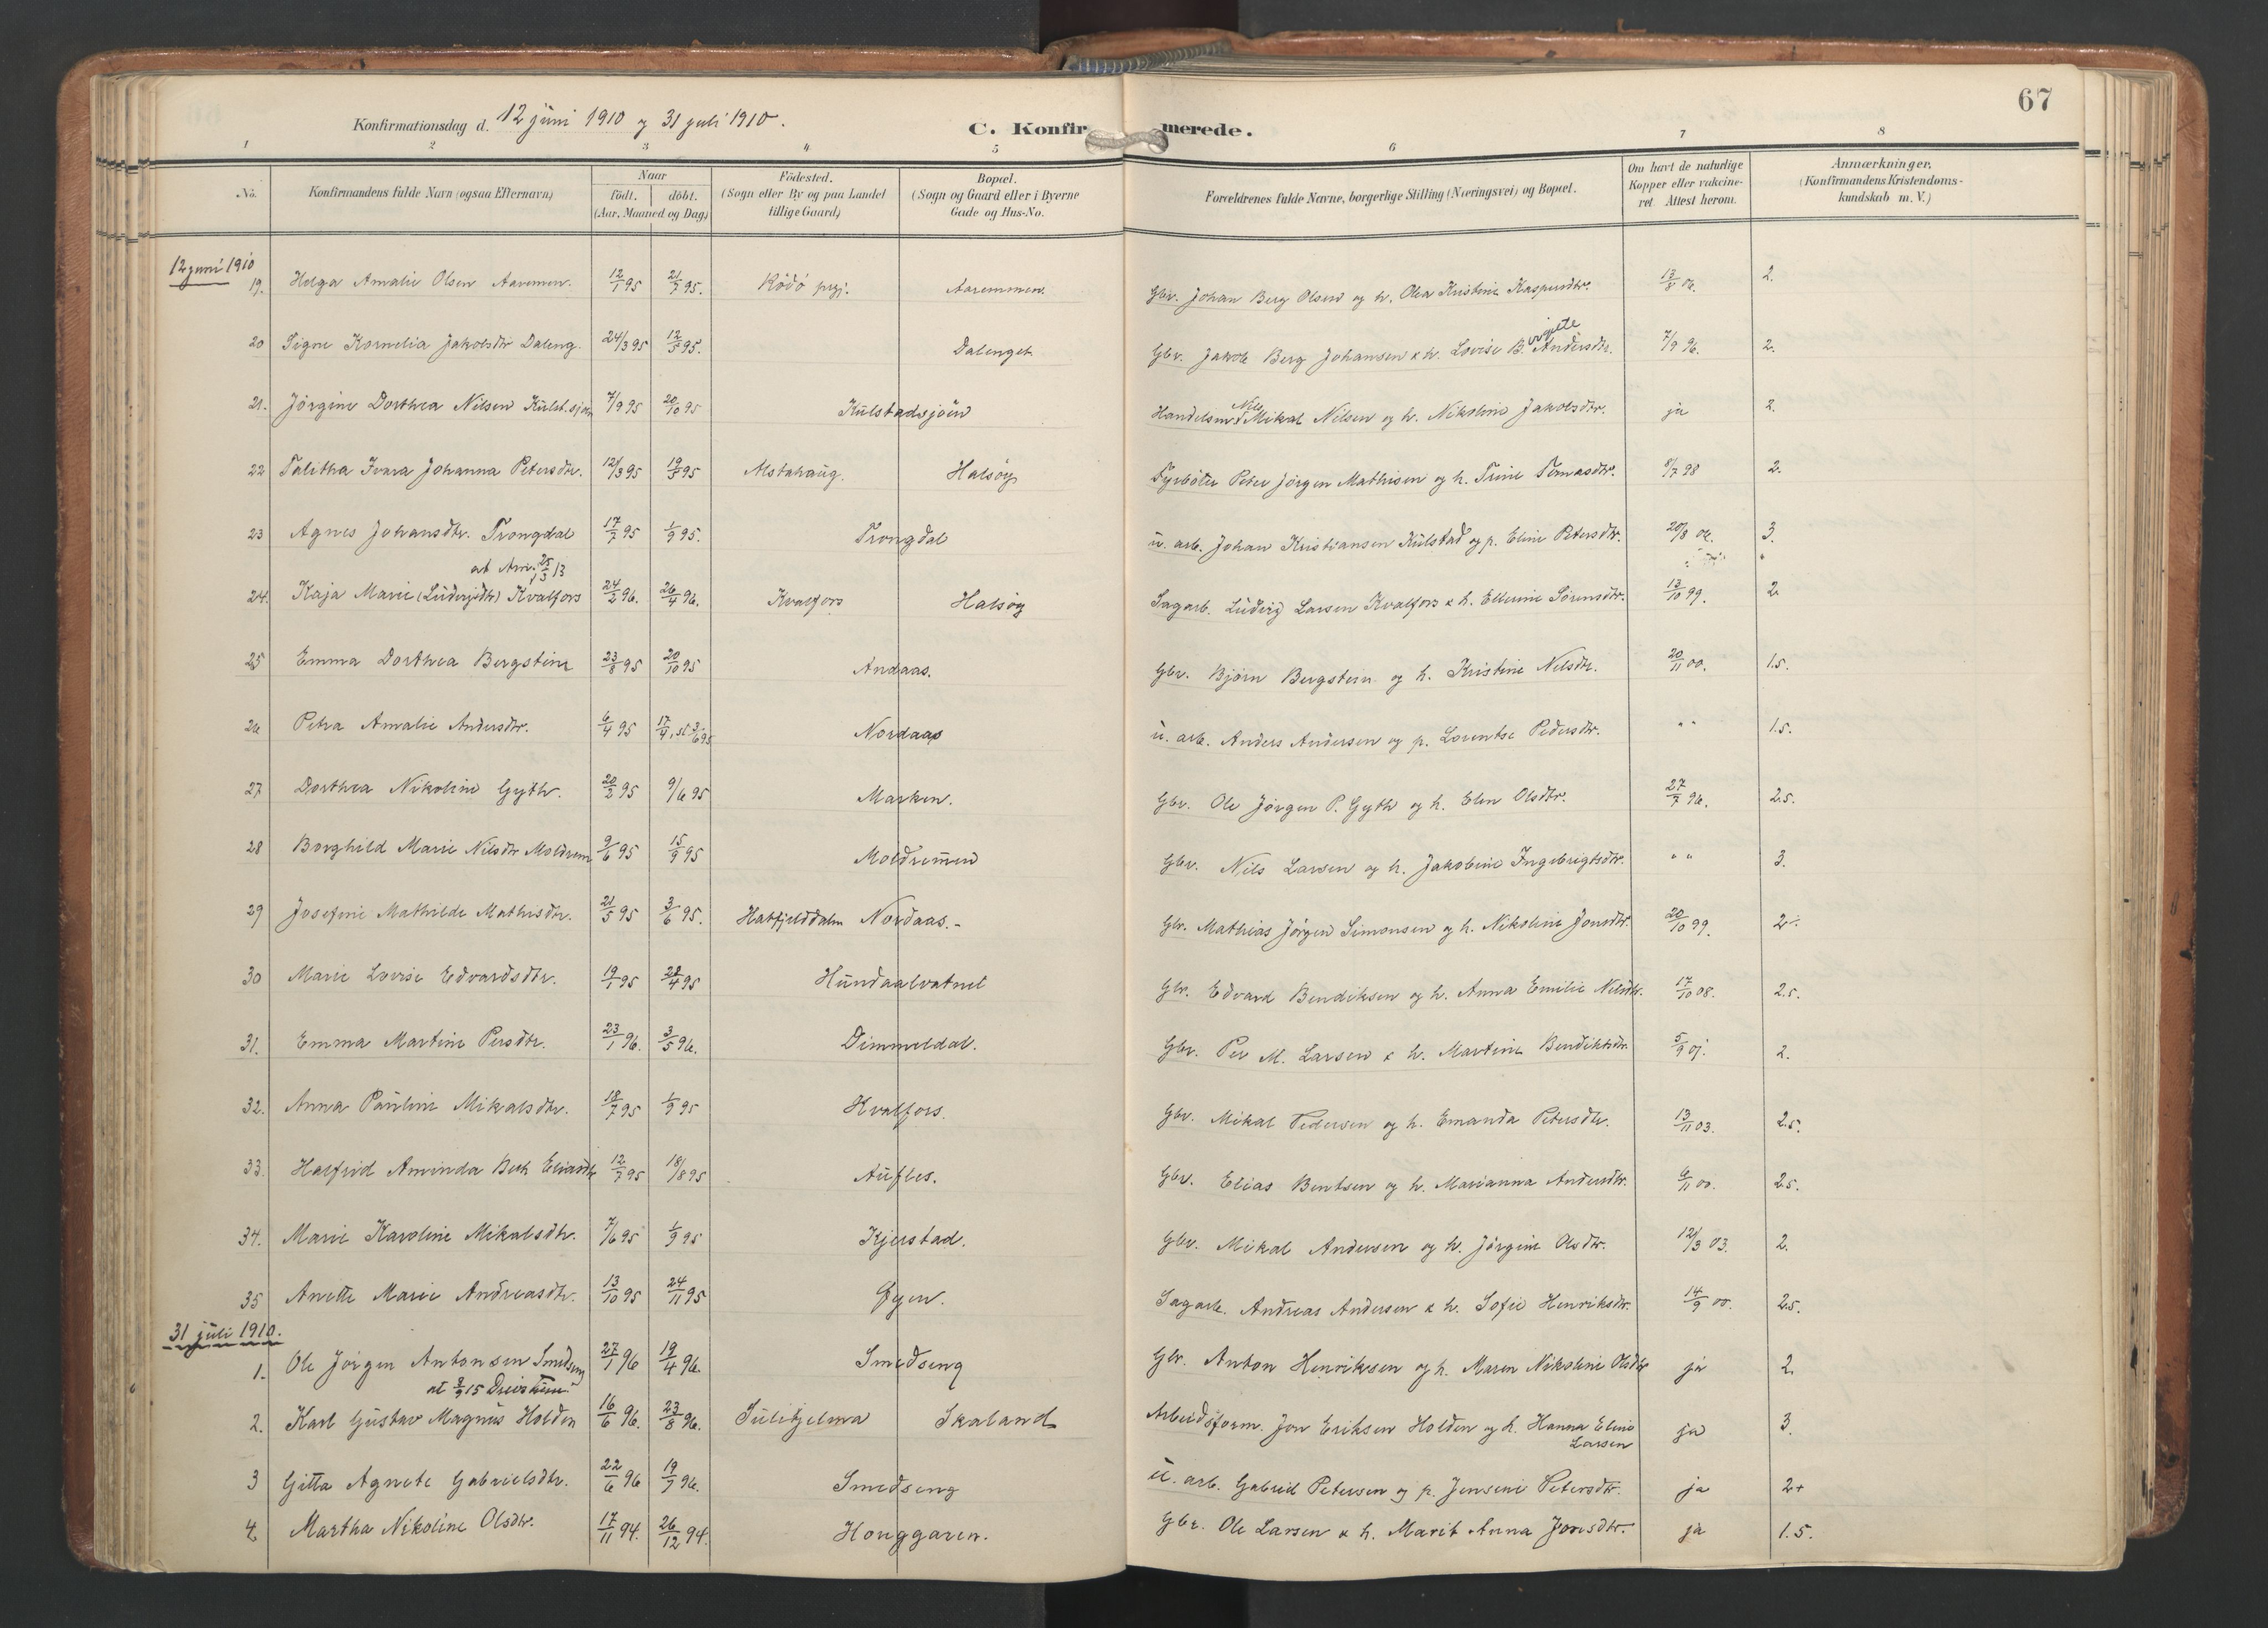 67
Konfirmationsdag d. 12 juni 1910 og 31 juli 1910.
C. Konfirmerede.
1 2 3 4 5 6 7 8
No. Konfirmandens fulde Navn (ogsaa Efternavn) Naar født. døbt. (Aar, Maaned og Dag) Fødested. (Sogn eller By og paa Landet tillige Gaard) Bopæl. (Sogn og Gaard eller i Byerne Gade og Hus-No. Forældrenes fulde Navne, borgerlige Stilling (Næringsvei) og Bopæl. Om havt de naturlige Kopper eller vakcineret Attest herom. Anmærkninger. (Konfirmandens Kristendomskundskab m. V.)
12 juni 1910
19. Helga Amalie Olsen Aaremmen. 12/1 95 21/7 95. Rødø prgj. Aaremmen. Gbr. Johan Berg Olsen og h. Olea Kristine Kaspersdtr. 13/8 06. 2.
20 Signe Kornelia Jakobsdtr Daleng. 24/3 95 12/5 95. Dalenget Gbr. Jakob Berg Johansen & h. Lovise B. Andersdtr. 7/9 96. 2.
21. Jørgine Dorthea Nilsen Kulst.sjøen 7/9 95 20/10 95 Kulstadsjøen Handelsmd Nils Mikal Nilsen og h. Nikoline Jakobsdtr. ja 2.
22 Talitha Ivara Johanna Petersdtr. 12/3 95 19/5 95 Alstahaug. Halsøy Fyrbøter Peter Jørgen Mathisen og h. Trine Tomasdtr. 8/7 98 2.
23 Agnes Johansdtr. Trongdal 17/7 95 1/9 95. Trongdal u. arb. Johan Kristiansen Kulstad og p. Eline Petersdtr. 20/8 06. 3.
at Am. 25/3 13
24. Kaja Marie (Ludvigsdtr) Kvalfors 24/2 96. 26/4 96. Kvalfors Halsøy Sagarb. Ludvig Larsen Kvalfors & h. Ellerine Sørensdtr. 13/10 99. 2
25 Emma Dorthea Bergstein 23/8 95 20/10 95 Andaas. Gbr. Bjørn Bergstein og h. Kristine Nelsdtr. 20/11 00. 1.5.
26 Petra Amalie Andersdtr. 6/4 95 17/4, st. 3/6 95 Nordaas u. arb. Anders Andersen og p. Lorentse Pedersdtr. " " 1.5.
27 Dorthea Nikoline Gyth. 20/2 95 9/6 95 Marken. Gbr. Ole Jørgen P. Gyth og h. Elen Olsdtr. 27/7 96. 2.5.
28 Borghild Marie Nilsdtr Moldrem 9/6 95 15/9 95 Moldremmen Gbr. Nils Larsen og h. Jakobine Ingebrigtsdtr. " " 3.
29 Josefine Mathilde Mathisdtr. 21/5 95 3/6 95. Hatfjelddalen Nordaas.- Gbr. Mathias Jørgen Simonsen og h. Nikoline Jonsdtr. 20/10 99. 2÷
30 Marie Lovise Edvardsdtr. 19/1 95 28/4 95 Hundaalvatnet Gbr. Edvard Bendiksen og h. Anna Emilie Nilsdtr. 17/10 08. 2.5.
31. Emma Martine Persdtr. 23/1 96. 3/5 96. Dimmeldal. Gbr. Per M. Larsen & h. Martine Bendiktsdtr. 5/9 07. 2.
32. Anna Pauline Mikalsdtr. 18/7 95 1/9 95 Kvalfors. Gbr. Mikal Pedersen og h. Emanda Petersdtr. 13/11 03. 2.5.
33. Harfrid Aminda Berh Eliasdtr 12/7 95 18/8 95 Aufles. Gbr. Elias Bentsen og h. Marianna Andersdtr. 6/11 00. 2.5.
34. Marie Karoline Mikalsdtr. 7/6 95 1/9 95 Kjerstad. Gbr. Mikal Andersen og h. Jørgine Olsdtr. 12/3 03. 2.
35 Anette Marie Andreasdtr. 13/10 95 24/11 95 Øyen. Sagarb. Andreas Andersen & h. Sofie Henriksdtr. 14/9 00. 2.5.
31 juli 1910.
1. Ole Jørgen Antonsen Smedseng 27/1 96 19/4 96. Smedseng Gbr. Anton Henriksen og h. Maren Nikoline Olsdtr ja 2
at 9/9 15
2. Karl Gustav Magnus Holden 16/6 96. 23/8 96. Sulitjelma Skaland Arbeidsform. Jon Eriksen Holden og h. Hanna Eline Larsen ja 3.
3 Gitta Agnete Gabrielsdtr. 22/6 96 19/7 96. Smedseng u. arb. Gabriel Petersen og p. Jensine Petersdtr. ja 2+
4 Martha Nikoline Olsdtr. 17/11 94. 26/12 94. Honggaren. Gbr. Ole Larsen & h. Marit Anna Jonsdtr. ja 1.5.